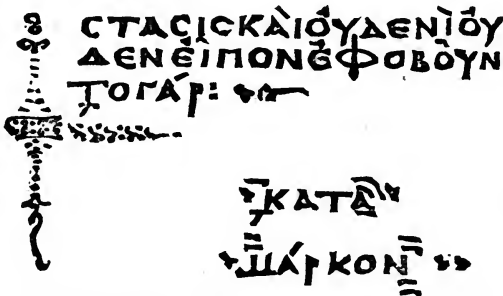 ϹΤΑϹΙϹΚΑῚΟὙΔΕΝῚΟὙ
ΔΕΝΕἾΠΟΝἘΦΟΒΟῦΝ
ΤΟΓΆΡ:
ΚΑΤᾺ
ΜΆΡΚΟΝ